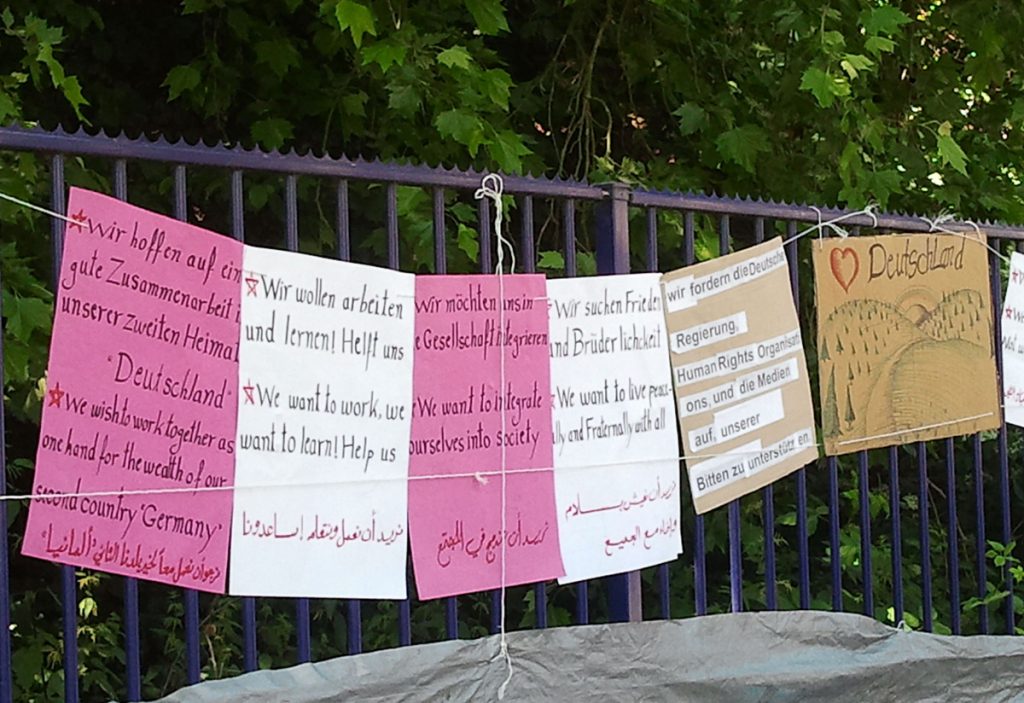 Wir hoffen auf ein
gute Zusammenarbeit i
unserer Zweiten Heimat
"Deutschland"
We wish to work together as
one hand for the wealth of our
second country "Germany"
نرجو أن نعمل معاً لخير بلدنا الثاني "ألمانيا"
Wir wollen arbeiten
und lernen! Helft uns
We want to work, we
want to learn! Help us
نريد أن نعمل ونتعلم إساعدونا
Wir möchten uns in
e Gesellschaft integrieren
We want to integrate
ourselves into society
نريد أن ندمج في المجتمع
Wir suchen Frieden
und Brüderlichkeit
We want to live peace-
ully and Fraternally with all
نريد أن نعيش بسلام
وإخاء مع الجميع
wir fordern die Deutsche
Regierung,
Human Rights Organisati
ons, und die Medien
auf, unserer
Bitten zu unterstütz en
Deutschland